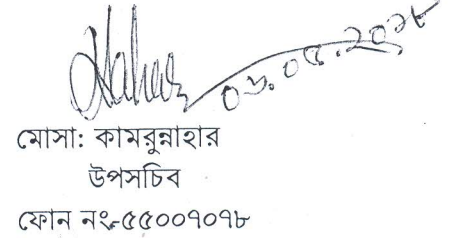 ০৬.০৫.২০১৮
মোসা: কামরুন্নাহার
উপসচিব
ফোন নং-৫৫০০৭০৭৮